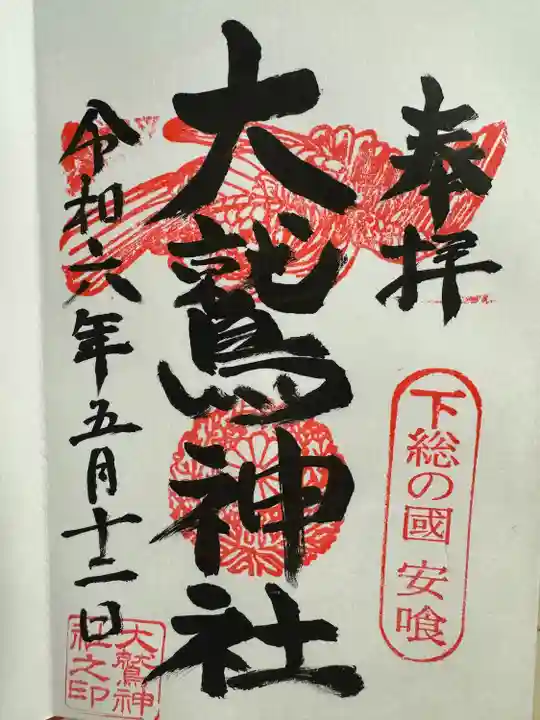 奉拝
下総の國 安喰
大鷲神社
令和六年五月十二日
大鷲神
社之印